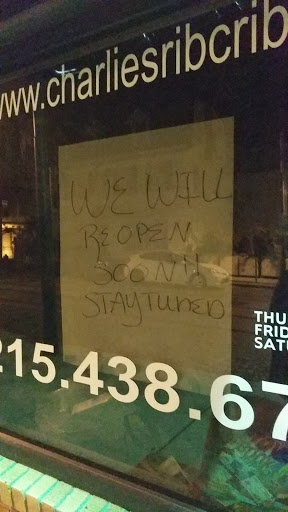 www.charliesribcrib
WE WILL
REOPEN
SOON!!
STAY TUNED
THU
FRID
SATU
215.438.67